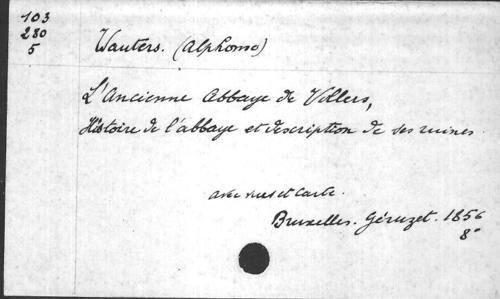 103
280
5
Wauters. (Alphonse)
L'Ancienne Abbaye de Villers,
Histoire de l'abbaye et description de ses ruines
avec vues et carte.
Bruxelles. Géruzet. 1856
8°